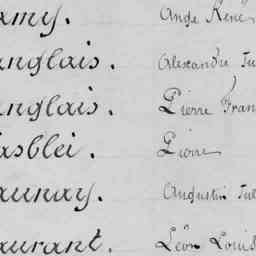 amy. Ange René
anglais. Alexandre Ju
anglais. Pierre Fran
asblei. Pierre
aunay. Augustin Jul
aurant. Léon Louis